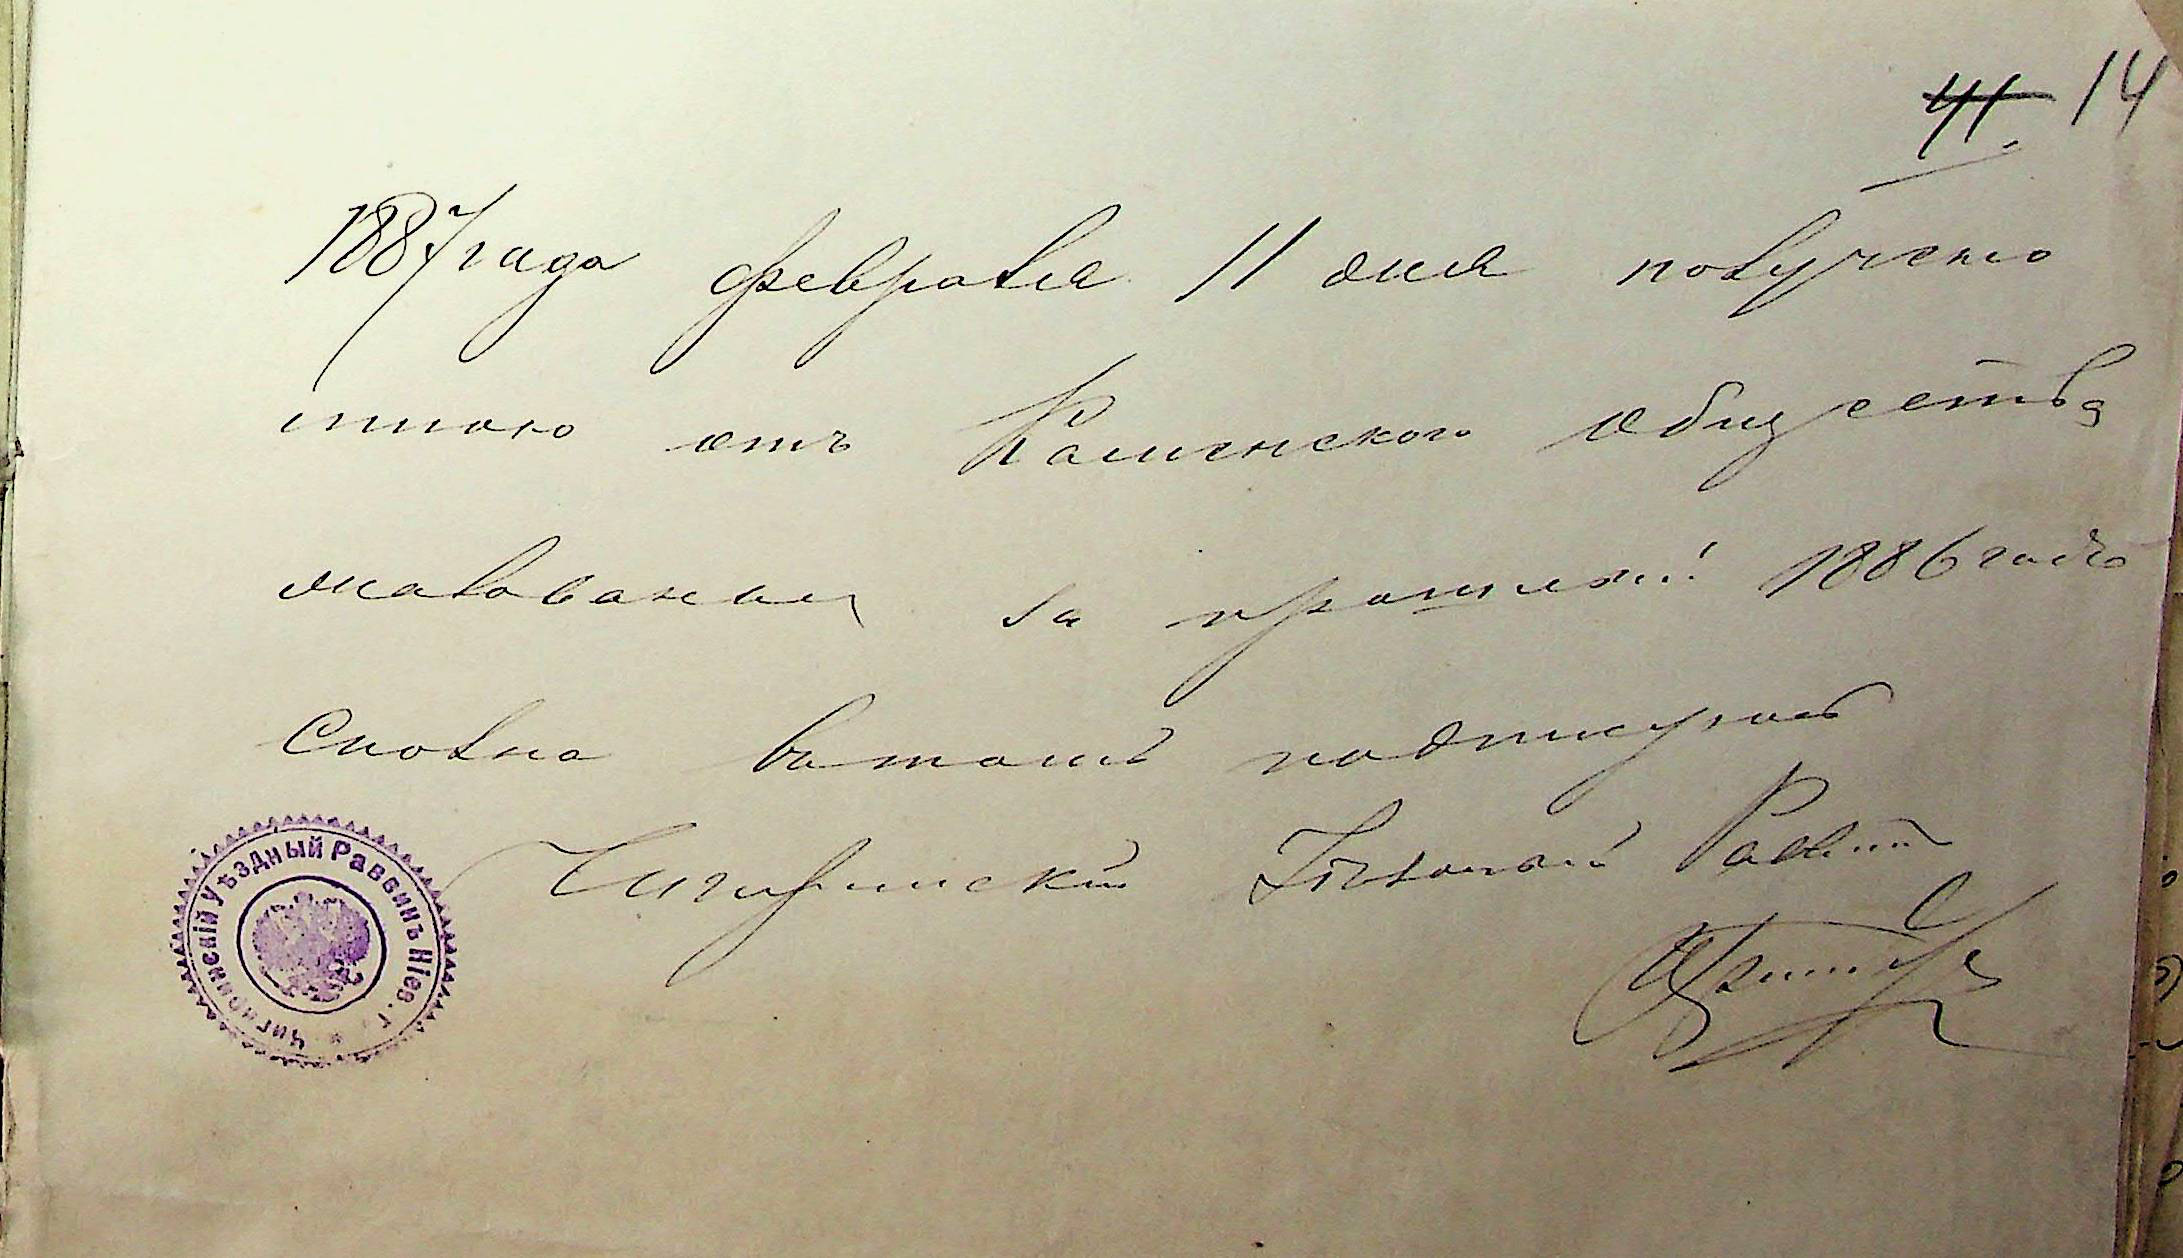 41. 14
1887 года февраля 11 дня получено
мною отъ Каменского общества
жалованье за прошлый 1886 годъ
сполна въ томъ подписуюсь
Чигиринскій Уѣздный Раввинъ
ЧИГИРИНСКІЙ УѢЗДНЫЙ РАВВИНЪ КІЕВ. Г.